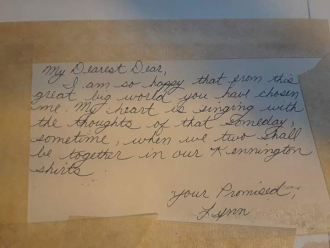 My Dearest Dear,
I am so happy that from this
great big world you have chosen
me. My heart is singing with
the thoughts of that someday,
sometime, when we two shall
be together in our Kennington
shirts
Your Promised,
Lynn